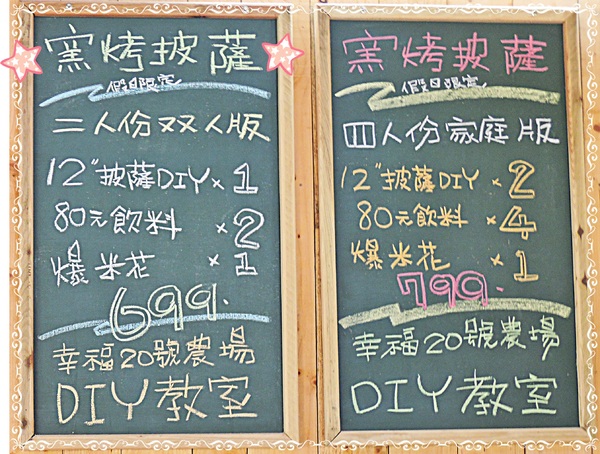 窯烤披薩
假日限定
二人份双人版
12"披薩DIY×1
80元飲料×2
爆米花×1
699.
幸福20號農場
DIY教室
窯烤披薩
假日限定
四人份家庭版
12"披薩DIY×2
80元飲料×4
爆米花×1
799.
幸福20號農場
DIY教室